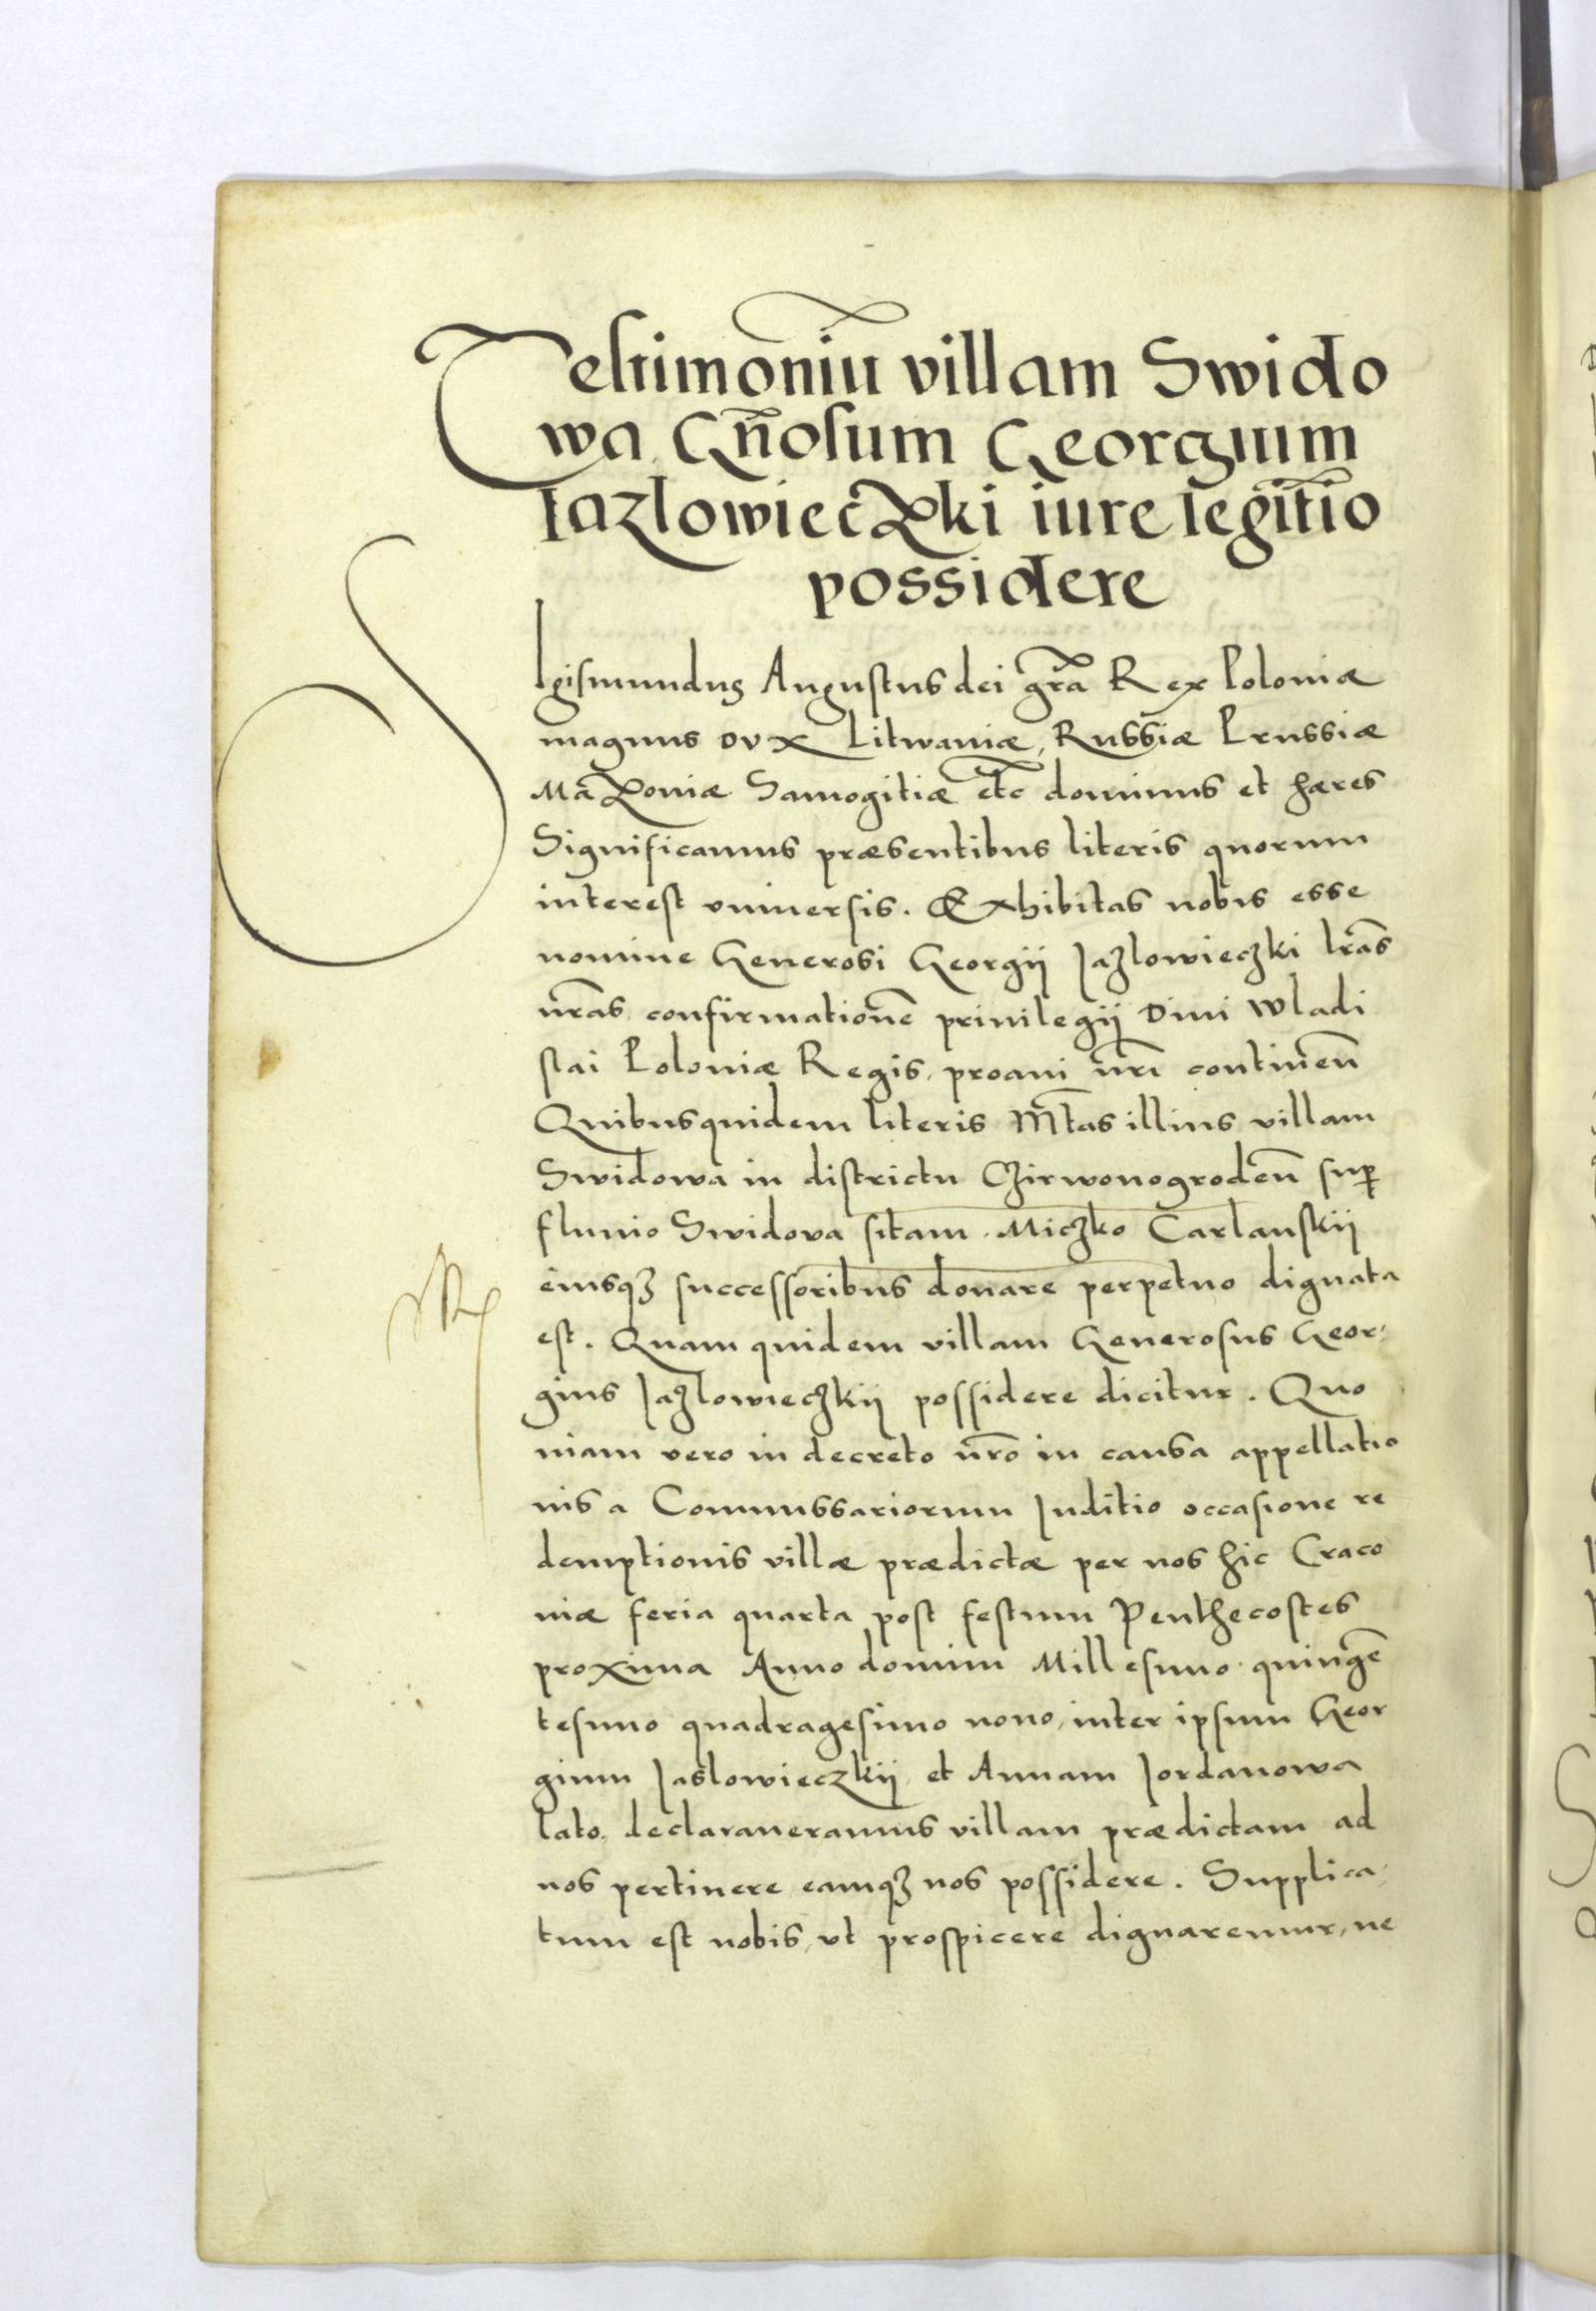 Testimoniū villam Swido
wa Gn̄osum Georgium
Iazlowieczki iure legitīo
possidere
SIgismundus Augustus dei gr̄a Rex Poloniæ
magnus DVX Litwaniæ, Russiæ Prussiæ
Mazoniæ Samogitiæ etc dominus et hæres
Significamus præsentibus literis quorum
interest vniuersis. Exhibitas nobis esse
nomine Generosi Georgij Jazlowieczki lr̄as
nr̄as confirmationē priuilegij Diui Wladi
slai Poloniæ Regis, proaui nr̄i continen̄
Quibusquidem literis M̄tas illius villam
Swidowa in districtu Czirwonogroden̄ sup
fluuio Swidova sitam. Miczko Carlanskij
eiusqꝫ successoribus donare perpetuo dignata
est. Quam quidem villam Generosus Geor,
gius Jazlowieczkij possidere dicitur. Quo
niam vero in decreto nr̄o in causa appellatio
nis a Commissariorum Juditio occasione re
demptionis villæ prædictæ per nos hic Craco
uiæ feria quarta post festum Penthecostes
proxima Anno domini Millesimo quingē
tesimo quadragesimo nono, inter ipsum Geor
gium Jaslowieczkij et Annam Jordanowa
lato, declaraueramus villam prædictam ad
nos pertinere eamqꝫ nos possidere. Supplica,
tum est nobis, vt prospicere dignaremur, ne